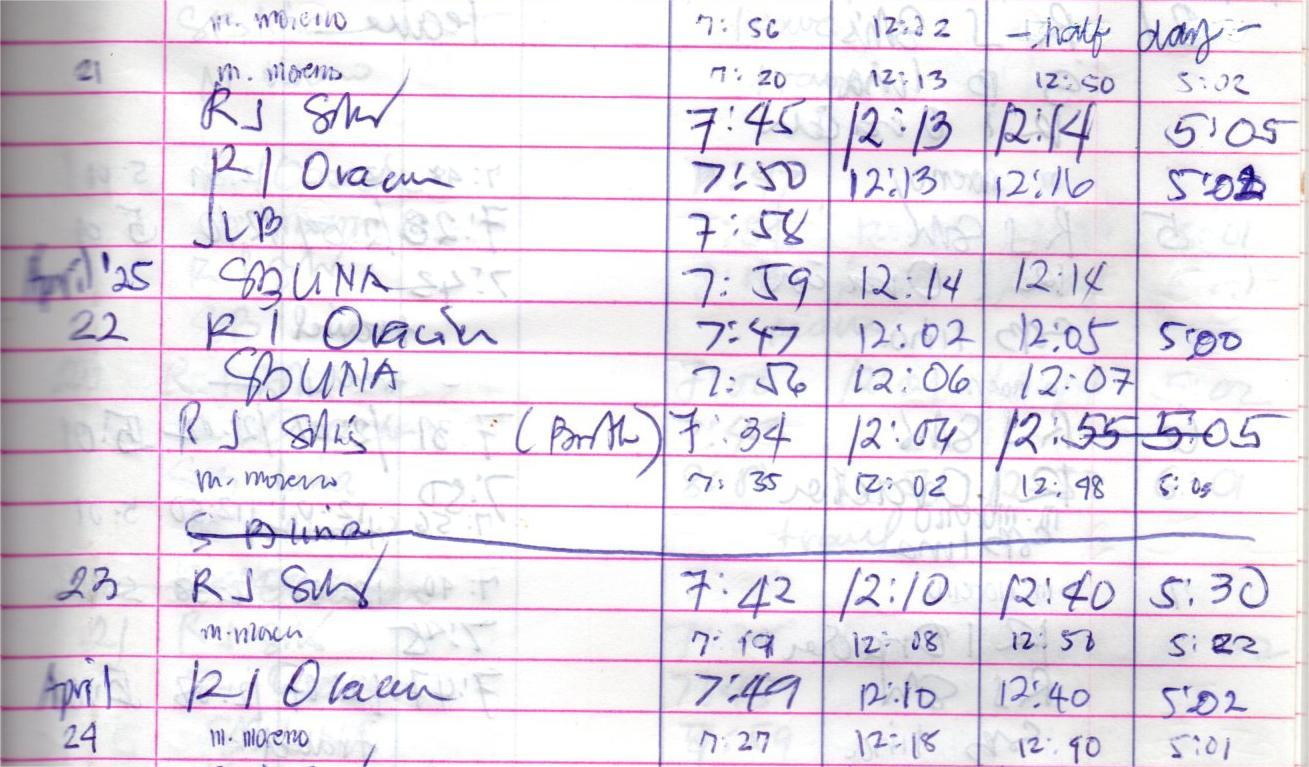 m. moreno 7:56 12:22 - half day -
21 m. moreno 7:20 12:13 12:50 5:02
RJ 7:45 12:13 12:14 5:05
7:50 12:13 12:16 5:02
JLB 7:58
April '25 SBUNA 7:59 12:14 12:14
22 7:47 12:02 12:05 5:00
SBUNA 7:56 12:06 12:07
RJ 7:34 12:04 12:55 5:05
m. moreno 7:35 12:02 12:48
S Buna
23 RJ 7:42 12:10 12:40 5:30
7:19 12:08 12:50 5:22
April 7:49 12:10 12:40 5:02
24 m. moreno 7:27 12:18 12:40 5:01